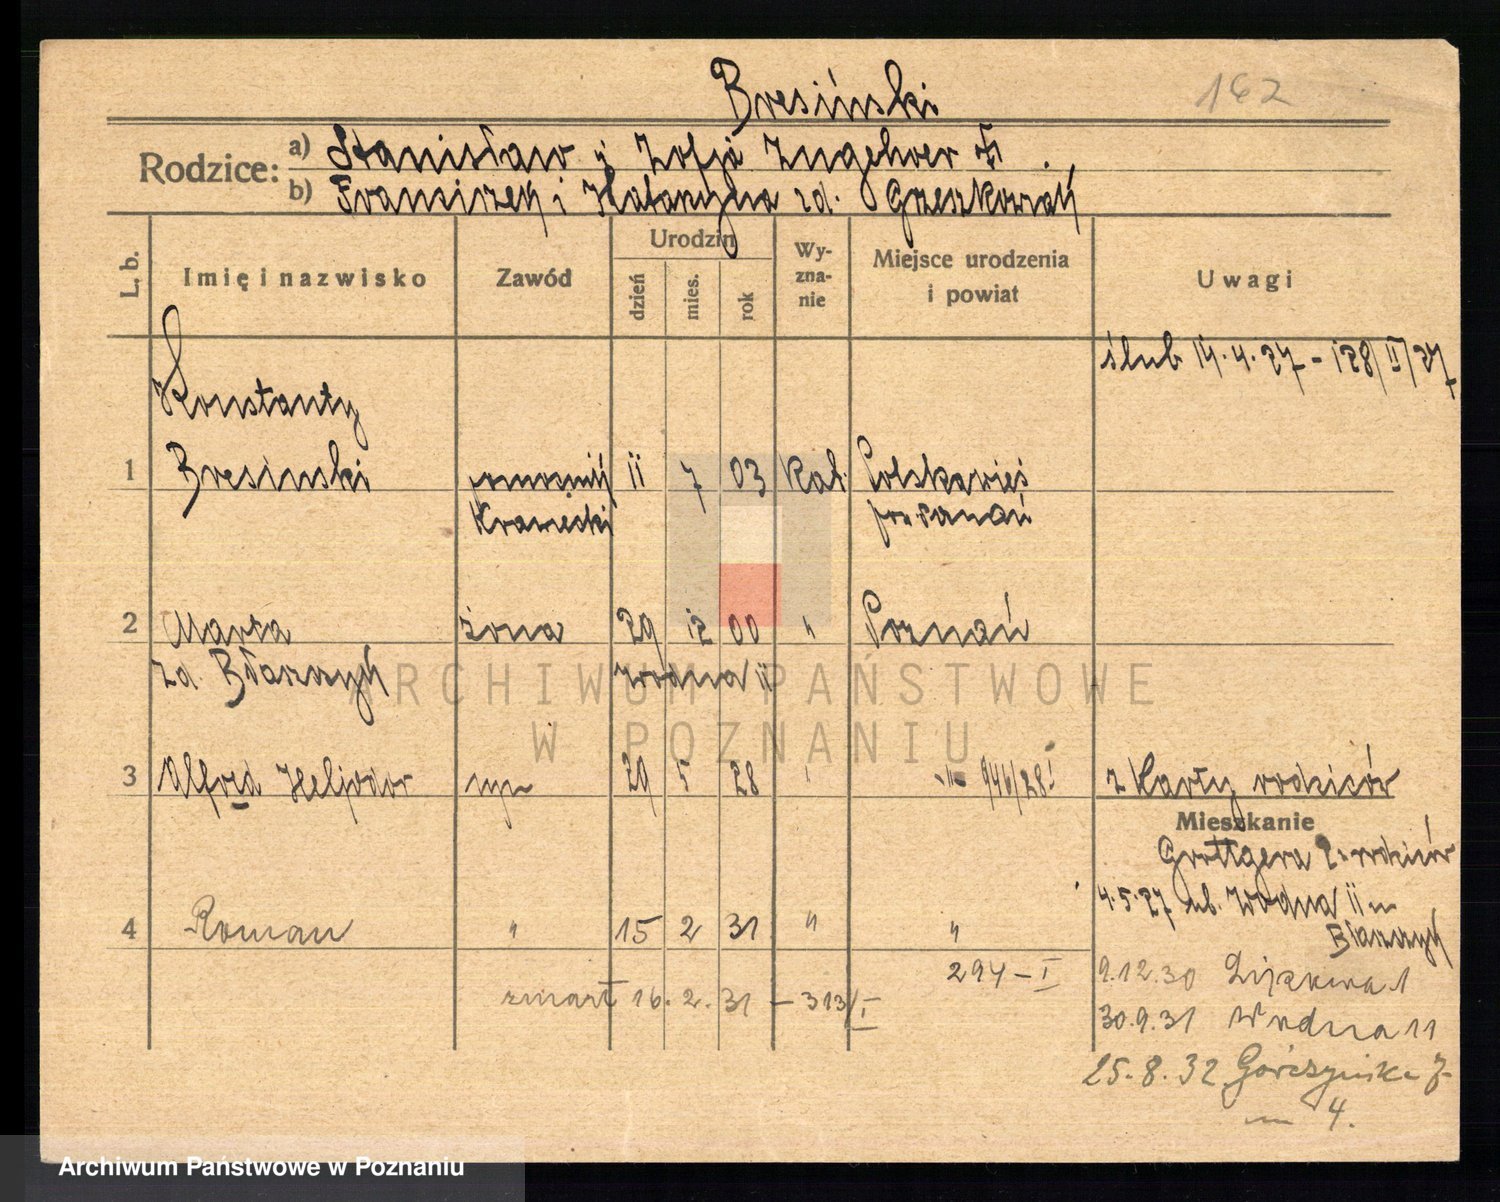 Bresiński
162
Rodzice:
a) Stanisław i Zofja
b) Franciszek i Katarzyna zd. Grzeszkowiak
L. b.
Imię i nazwisko
Zawód
Urodzin
dzień
mies.
rok
Wy-
zna-
nie
Miejsce urodzenia
i powiat
Uwagi
ślub 14.4.27 - 128/II/27
Konstanty
1 Bresinski 11 7 03 Kat.
Krawiecki poznań
2 Marta żona 29 12 00 " Poznań
zd. Błaszzyk Wodna 11
3 Alfred Heljodor syn 29 5 28 946/28 z Karty rodziców
Mieszkanie
Grottgera rodziców
4.5.27 Wodna 11 m
4 Roman " 15 2 31 " "
294-I
9.12.30 1
zmarł 16.2.31 - 313/I
30.9.31 Wodna 11
25.8.32 Górczyńska 7
m 4.
ARCHIWUM PAŃSTWOWE
W POZNANIU
Archiwum Państwowe w Poznaniu